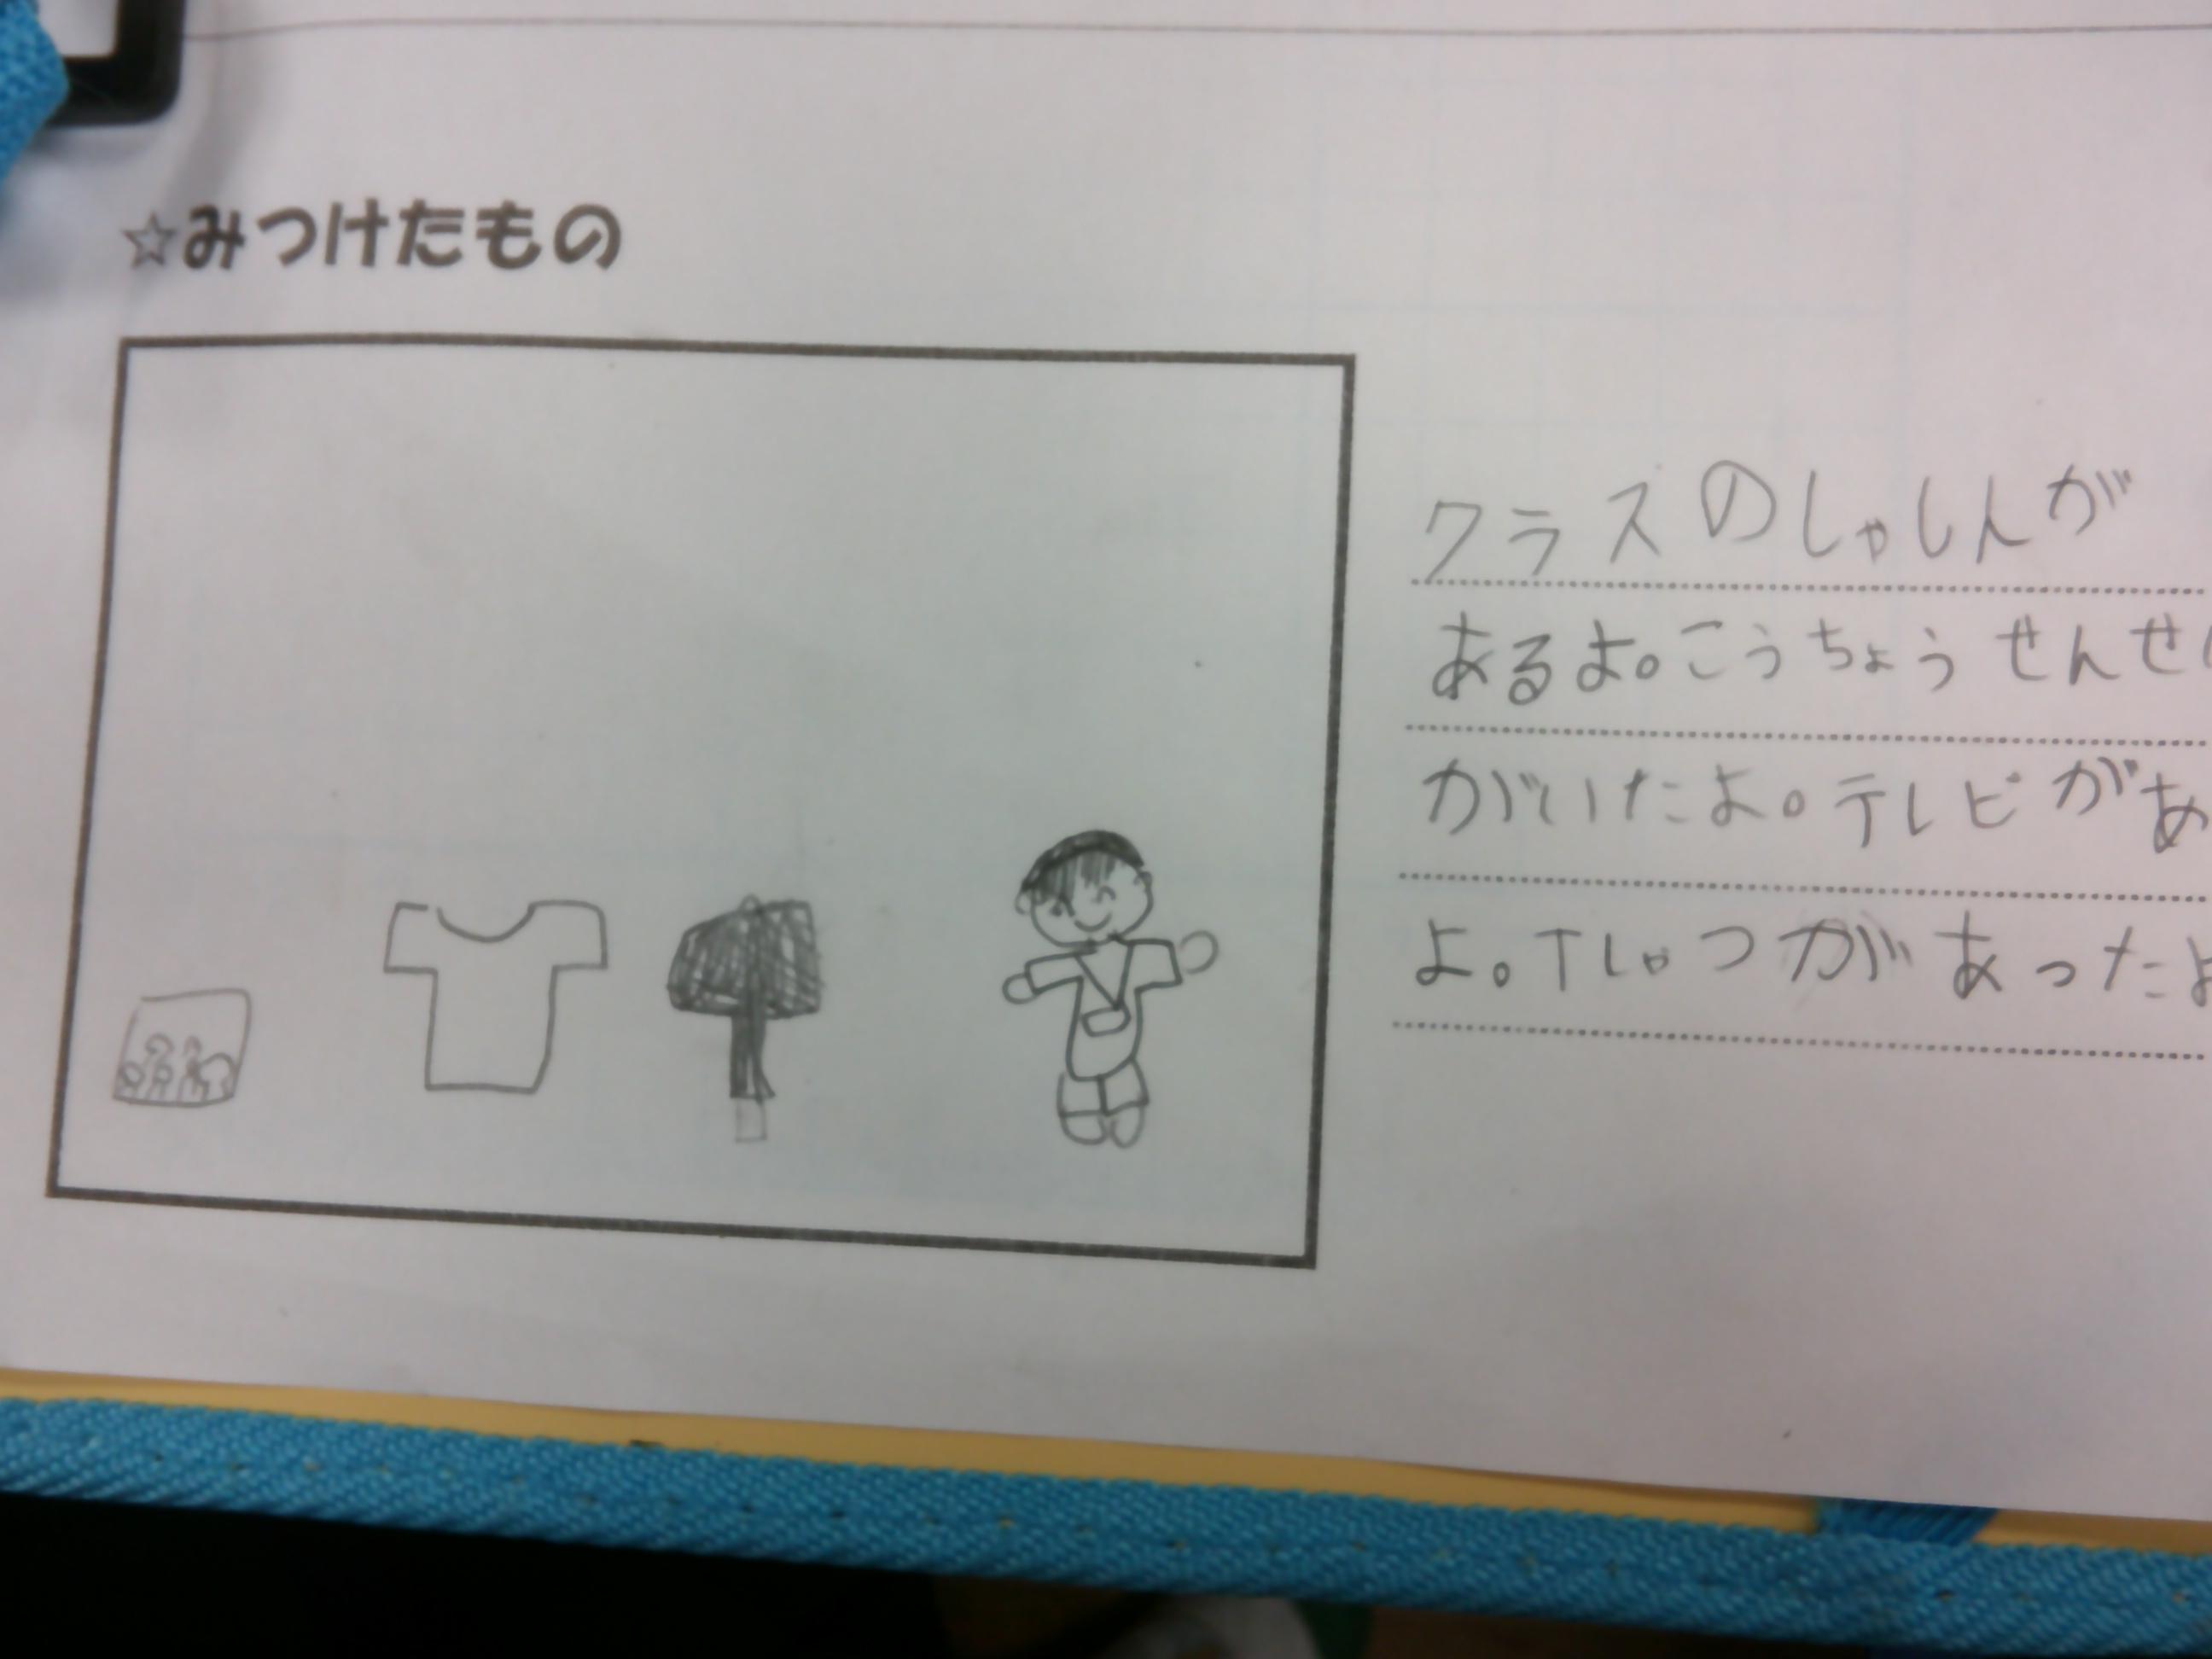 ☆みつけたもの
クラスのしゃしんが
あるよ。こうちょうせんせ
がいたよ。テレビがあ
よ。Tしゃつがあったよ